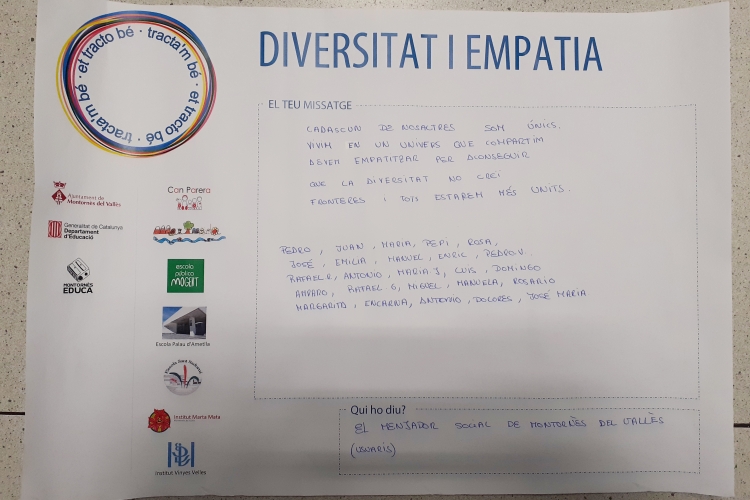 et tracto bé · tracta'm bé · et tracto bé · tracta'm bé ·
DIVERSITAT I EMPATIA
EL TEU MISSATGE
CADASCUN DE NOSALTRES SOM ÚNICS.
VIVIM EN UN UNIVERS QUE COMPARTIM
DEVEM EMPATITZAR PER D'CONSEGUIR
QUE LA DIVERSITAT NO CREÏ
FRONTERES I TOTS ESTAREM MÉS UNITS.
PEDRO, JUAN, MARIA, PEPI, ROSA,
JOSÉ, EMILIA, MANUEL, ENRIC, PEDRO V.
RAFAEL R, ANTONIO, MARIA J, LUIS, DOMINGO
AMPARO, RAFAEL G, MIGUEL, MANUELA, ROSARIO
MARGARITA, ENCARNA, ANTONIO, DOLORES, JOSÉ MARIA
Qui ho diu?
EL MENJADOR SOCIAL DE MONTORNÈS DEL VALLÈS
(USUARIS)
Ajuntament de
Montornès del Vallès
Can Parera
Generalitat de Catalunya
Departament
d'Educació
MONTORNÈS
EDUCA
escola
pública
MOGENT
Escola Palau d'Ametlla
Institut Marta Mata
Institut Vinyes Velles